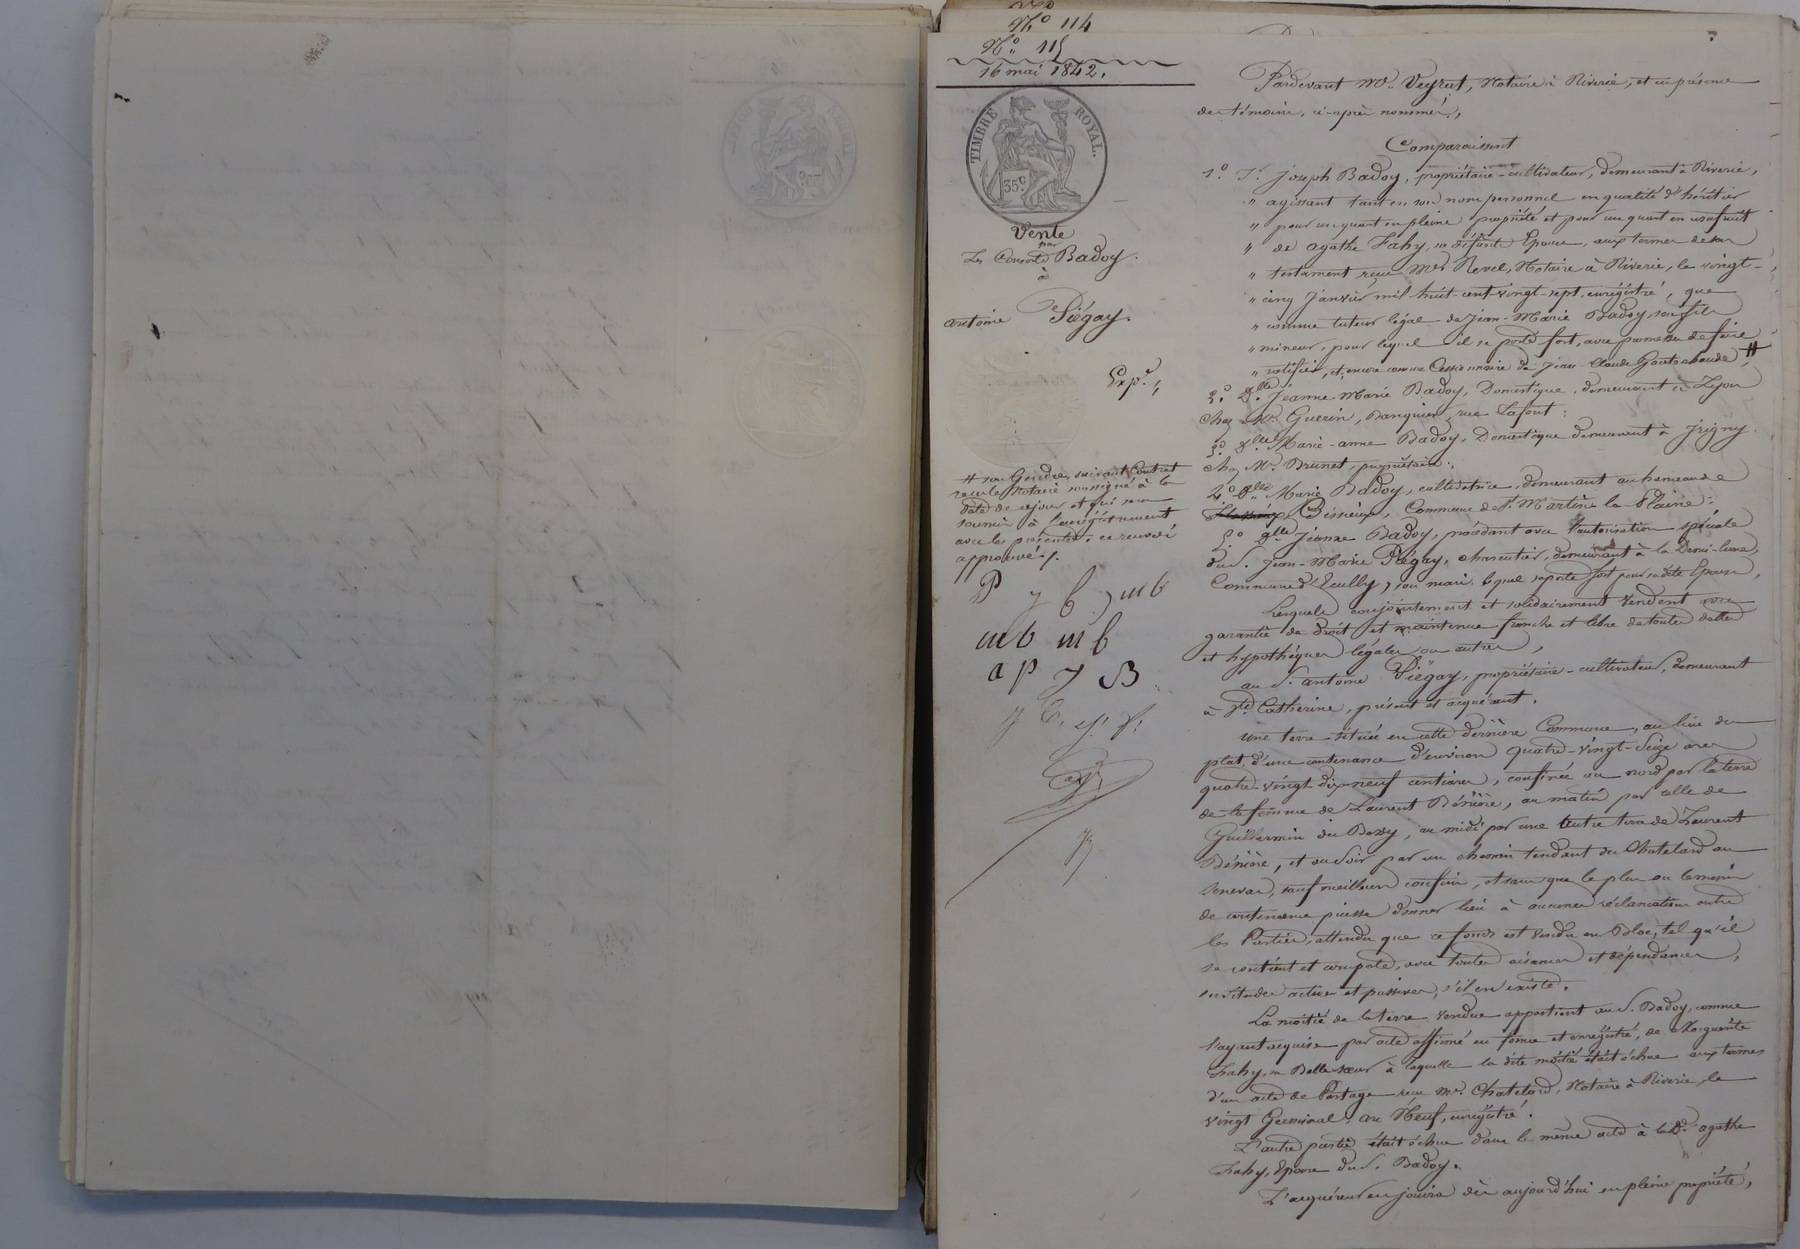 N° 114
N° 115
16 mai 1842.
TIMBRE ROYAL.
35 c
Vente
par
Les Consorts Badoy.
à
antoine Piégay.
Exp.é
# son Gendre, suivant Contrat
reçu le Notaire soussigné à la
date de ce jour et qui sera
soumis à l'enregistrement
avec les présentes. ce renvoi
approuvé ./.
P J B J mb
mb mb
a p J B
Pardevant Me Veyrut, Notaire à Riverie, et en présence
des témoins, ci-après nommés,
Comparaissent
1.° S.r Joseph Badoy, propriétaire-cultivateur, demeurant à Riverie,
" agissant tant en son nom personnel en qualité d'héritier
" pour un quart en pleine propriété et pour un quart en usufruit
" de agathe Fahy, sa défunte Epouse, aux termes de son
" testament reçu Me Revel, Notaire à Riverie, le vingt-
" cinq Janvier mil huit cent vingt-sept, enregistré, que
" comme tuteur légal de Jean-Marie Badoy son fils
" mineur, pour lequel il se porte fort, avec promesse de faire
" ratifier, et encore comme Cessionnaire de Jean-Claude Goutechaude #
2.° D.lle Jeanne Marie Badoy, Domestique, demeurant à Lyon
chez Mr. Guerin, Banquier, rue Lafont;
3.° D.lle Marie-anne Badoy, Domestique demeurant à Irigny.
chez Mr. Brunet, propriétaire;
4.° D.lle Marie Badoy, cultivatrice, demeurant au hameau de
Bissieux, Commune de St. Martin la Plaine;
5.° D.lle Jeanne Badoy, procédant avec l'autorisation spéciale
du S. Jean-Marie Piégay, charcutier, demeurant à la Demi-lune,
Commune d'Ecully, son mari. lequel se porte fort pour sa dite Epouse,
Lesquels conjointement et solidairement vendent avec
garantie de droit et maintenue franche et libre de toutes dettes
et hypothèques légales ou autres,
au S. antoine Piégay, propriétaire-cultivateur, demeurant
à Ste. Catherine, présent et acquérant,
une terre située en cette dernière Commune, au lieu du
plat, d'une contenance d'environ quatre-vingt-Seize ares
quatre-vingt-dix-neuf centiares, confinée au nord par la terre
de la femme de Laurent Bénière, au matin par celle de
Guilhermin du Bessy, au midi par une autre terre de Laurent
Bénière, et au Soir par un chemin tendant du Chatelard au
Seneval, sauf meilleurs confins, et sans que le plus ou le moins
de contenance puisse donner lieu à aucunes réclamations entre
les Parties, attendu que ce fonds est vendu en Bloc, tel qu'il
se contient et comporte, avec toutes aisances et dépendances,
servitudes actives et passives, s'il en existe.
La moitié de la terre vendue appartient au S. Badoy, comme
l'ayant acquise par acte affirmé en forme et enregistré, de Marguerite
Fahy, sa Belle-sœur à laquelle la dite moitié était échue aux termes
d'un acte de Partage reçu Me. Chatelard, Notaire à Riverie, le
vingt Germinal an Neuf, enregistré.
L'autre partie était échue dans le même acte à la De. agathe
Fahy, Epouse du S. Badoy.
L'acquéreur en jouira dès aujourd'hui en pleine propriété,